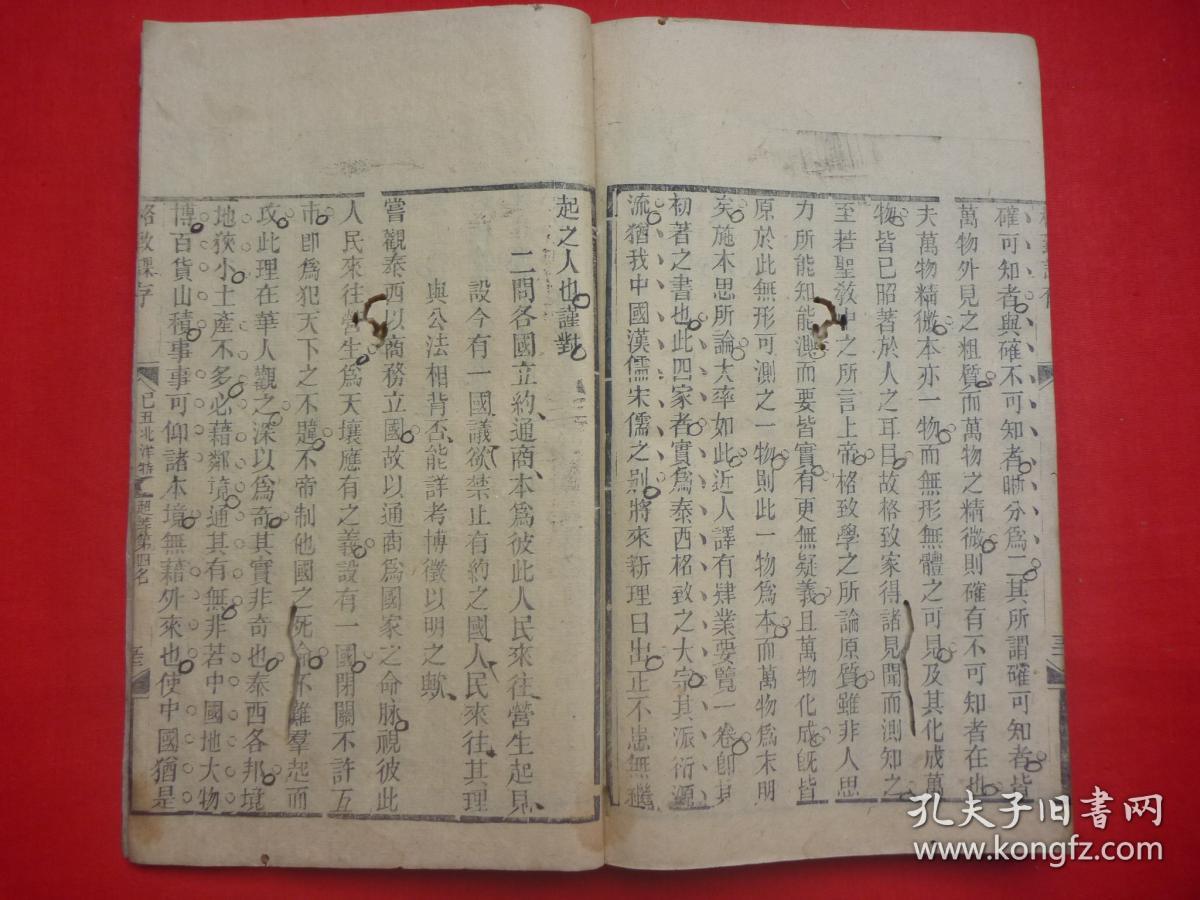 確可知者與確不可知者晰分爲二其所謂確可知者皆
萬物外見之粗質而萬物之精微則確有不可知者在也
夫萬物精微本亦一物而無形無體之可見及其化成萬
物皆已昭著於人之耳目故格致家得諸見聞而測知之
至若聖教中之所言上帝格致學之所論原質雖非人思
力所能知能測而要皆實有更無疑義且萬物化成旣皆
原於此無形可測之一物則此一物爲本而萬物爲末明
矣施本思所論大率如此近人譯有肄業要覽一卷卽其
初著之書也此四家者實爲泰西格致之大宗其派衍源
流猶我中國漢儒宋儒之別將來新理日出正不患無繼
起之人也謹對
二問各國立約通商本爲彼此人民來往營生起見
設今有一國議欲禁止有約之國人民來往其理
與公法相背否能詳考博徵以明之歟
嘗觀泰西以商務立國故以通商爲國家之命脉視彼此
人民來往營生爲天壤應有之義設有一國閉關不許互
市卽爲犯天下之不韙不帝制他國之死命不難羣起而
攻此理在華人觀之深以爲奇其實非奇也泰西各邦境
地狹小土產不多必藉鄰境通其有無非若中國地大物
博百貨山積事事可仰諸本境無藉外來也使中國猶是
格致課存
己丑北洋特
超等第四名
孔夫子旧书网
www.kongfz.com